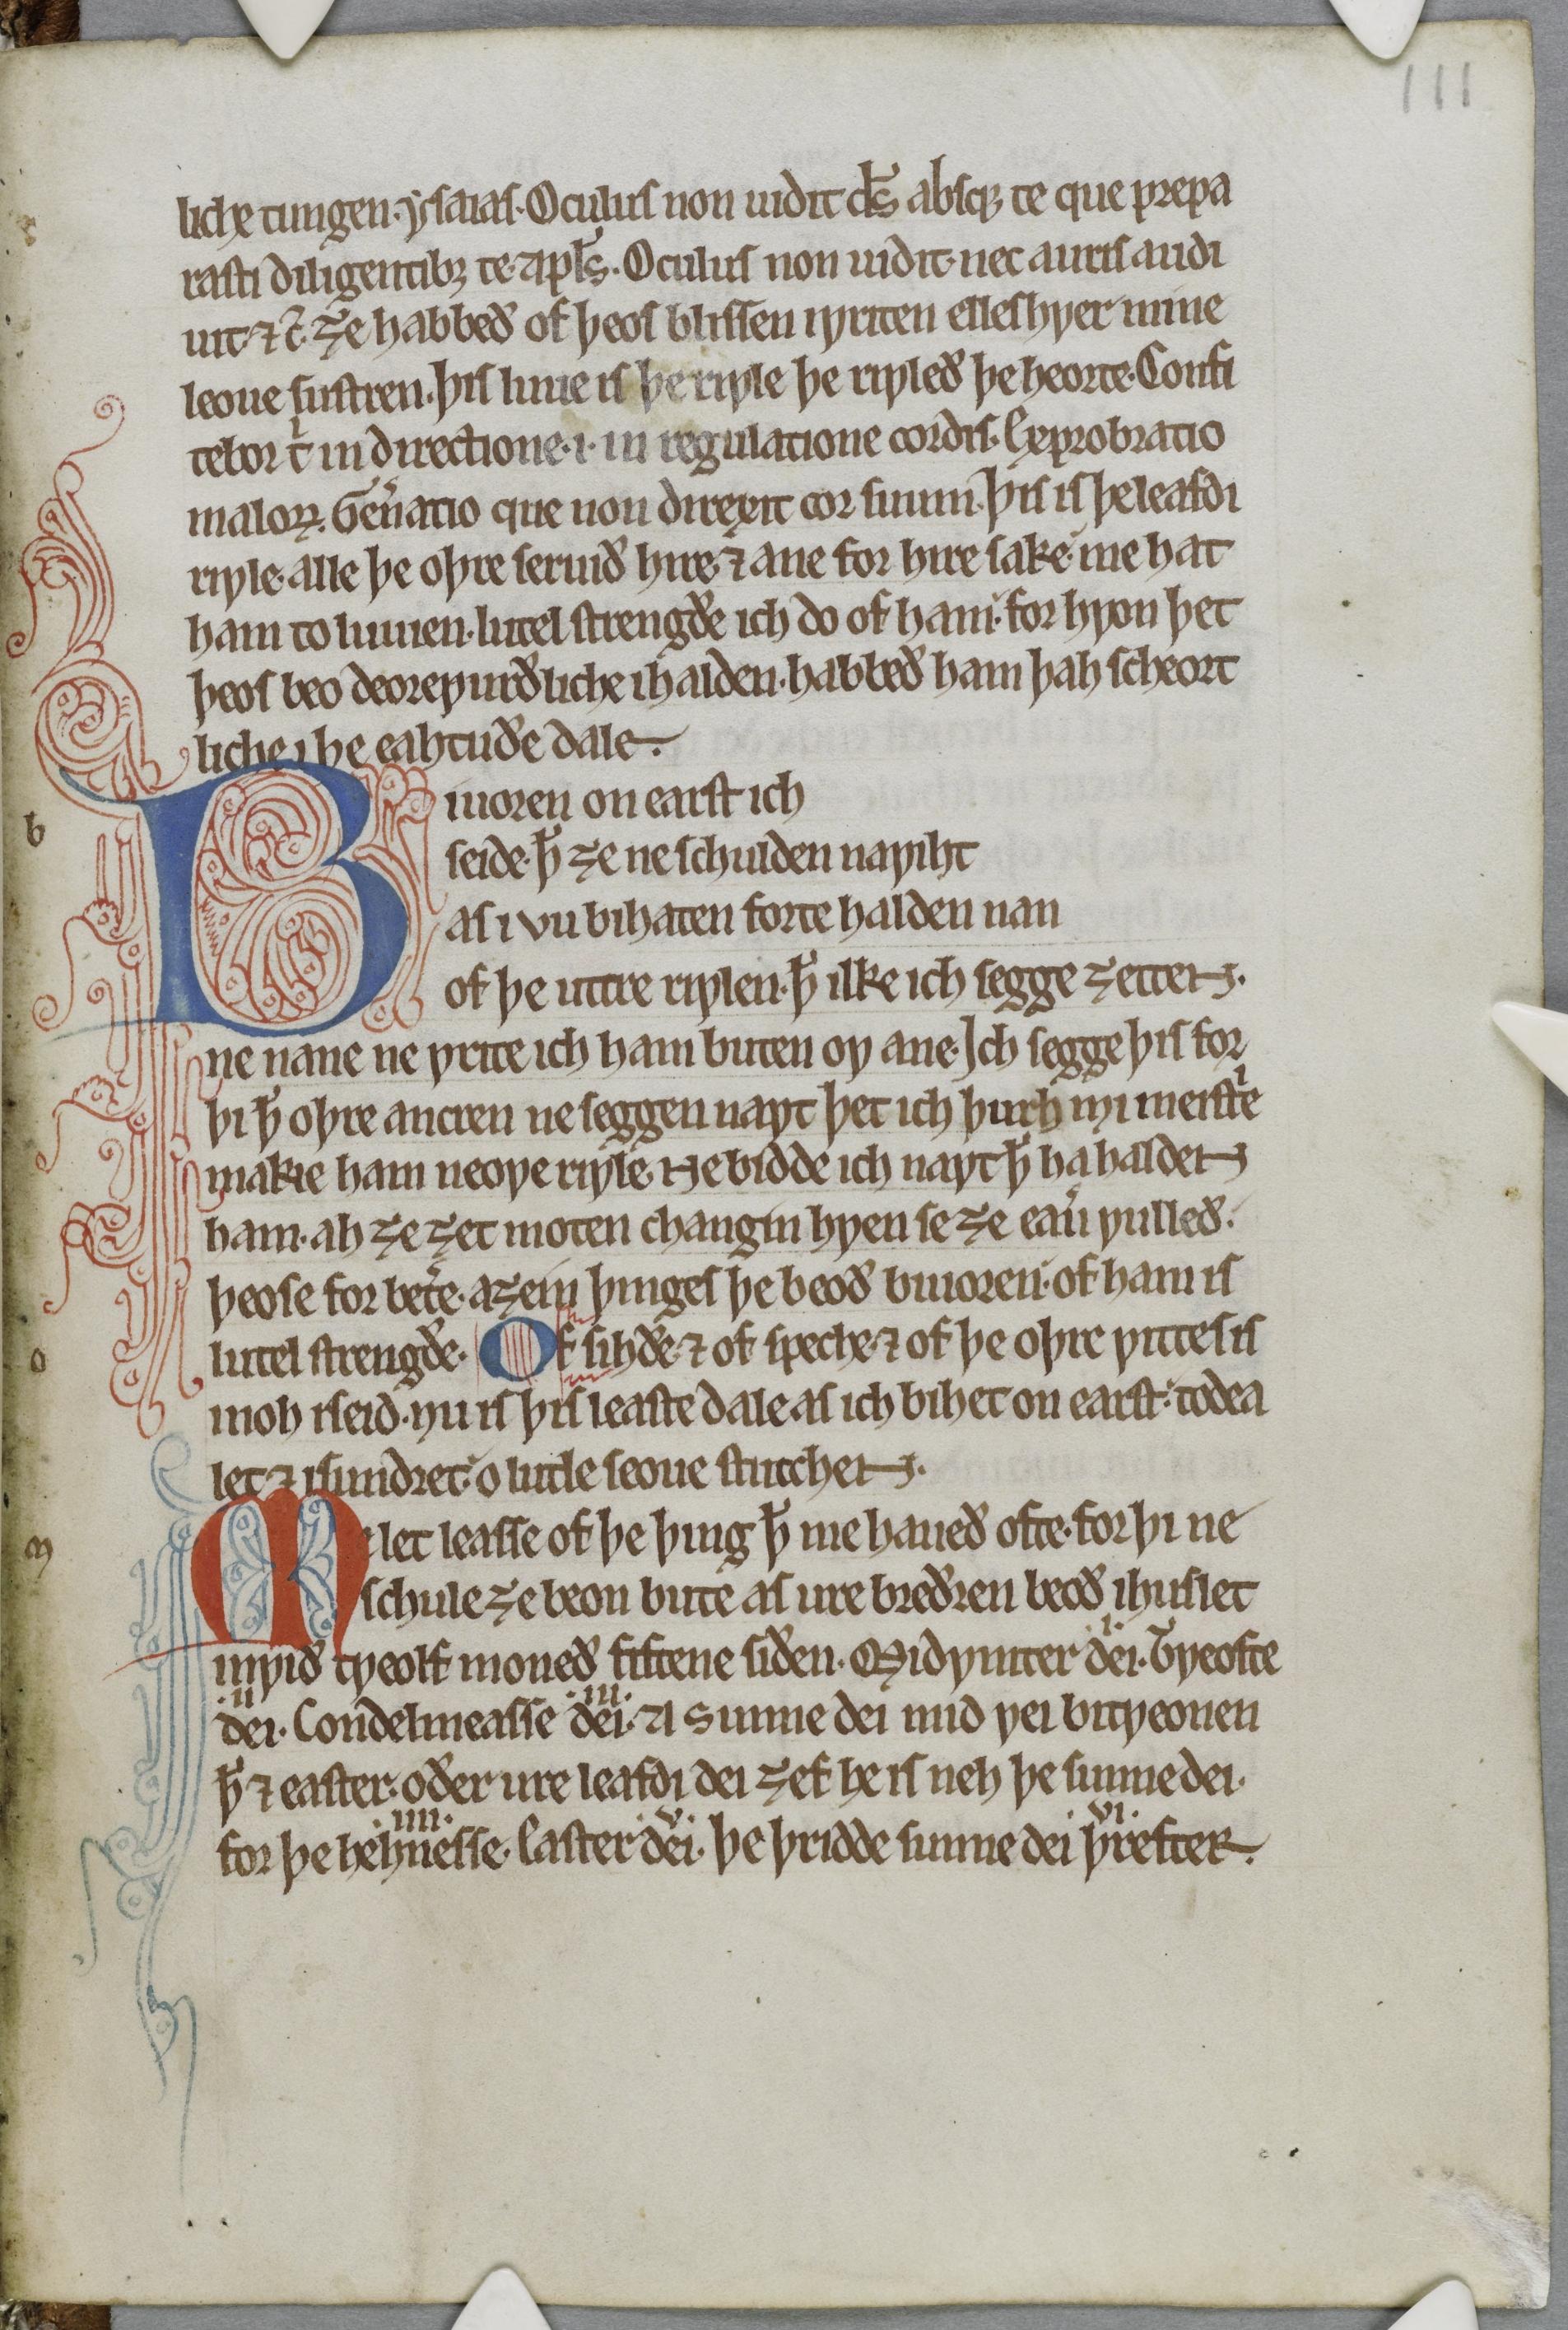 111
liche tungen. ysaias. Oculus non uidit ds̄ absq; te que prepa
rasti diligentib; te. ⁊ apl̄s. Oculus non uidit. nec auris audi
uit. ⁊ c̄. ȝe habbeð of þeos blissen iƿriten elleshƿer mine
leoue sustren. þis luue is þe riƿle þe riƿleð þe heorte. Confi
tebor tⁱ in directione .i. in regulatione cordis. Exprobratio
maloꝝ. Gen̄atio que non direxit cor suum. þis is þe leafdi
riƿle. alle þe oþre seruið hire. ⁊ ane for hire sake me hat
ham to luuien. lutel strengðe ich do of ham. for hƿon þet
þeos beo deoreƿurðliche ihalden. habbeð ham þah scheort
liche i þe eahtuðe dale.
b
Biuoren on earst ich
seide. ꝥ ȝe ne schulden naƿiht
as i vu bihaten forte halden nan
of þe uttre riƿlen. ꝥ ilke ich segge ȝetten.
ne nane ne ƿrite ich ham buten oƿ ane. Ich segge þis for
þi ꝥ oþre ancren ne seggen naƿt þet ich þurh mi meistⁱe
makie ham neoƿe riƿle. Ne bidde ich naƿt ꝥ ha halden
ham. ah ȝe ȝet moten changin hƿen se ȝe eau̓ ƿulleð.
þeose for bet̓e. aȝein þinges þe beoð biuoren. of ham is
o
lutel strengðe. Of sihðe. ⁊ of speche. ⁊ of þe oþre ƿittes is
inoh iseid. nu is þis leaste dale as ich bihet on earst. todea
let ⁊ isundret. o lutle seoue stucchen.
m
Me let leasse of þe þing ꝥ me haueð ofte. for þi ne
schule ȝe beon bute as ure breðren beoð ihuslet
inƿið tƿeolf moneð fiftene siðen. Midƿinter dei. .i. Tƿeofte
dei. .ii. Condelmeasse dei. .iii. ⁊ I sunne dei mid ƿei bitƿeonen
ꝥ ⁊ easter. oðer ure leafdi dei ȝef he is neh þe sunne dei.
for þe hehnesse. .iiii. Easter dei. .v. þe þridde sunne dei þrefter. .vi.